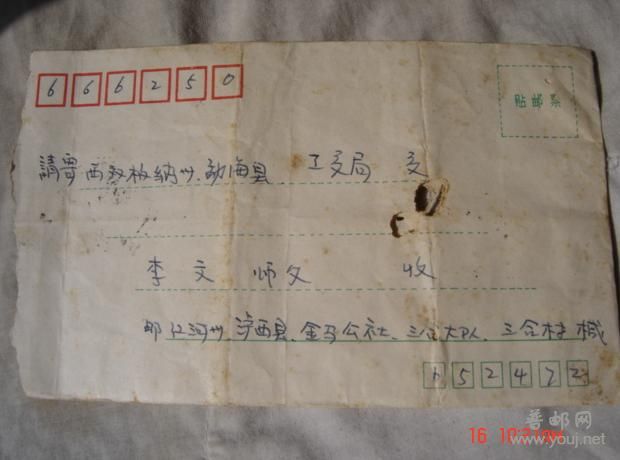 666250
贴邮票
請寄西双板纳州、勐海县 工交局 交
李文师父 收
邮红河州、泸西县、金马公社、三合大队、三合村
652472
普邮网
www.youj.net
16 10